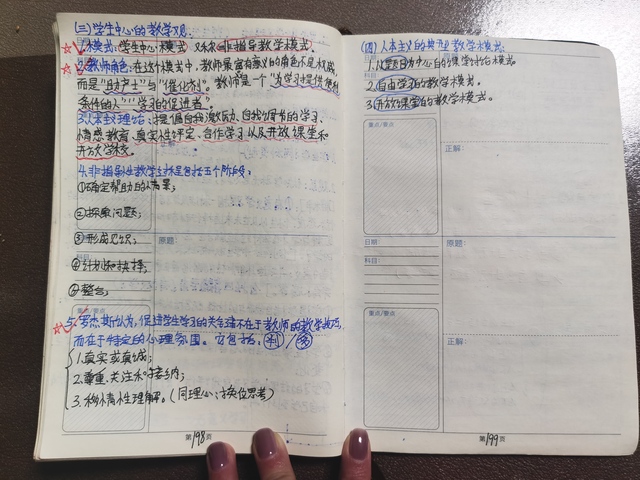 (三)学生中心的教学观
1.模式:学生中心模式 又称非指导教学模式。
2.教师角色:在这个模式中,教师最富有意义的角色不是权威,
而是"助产士"与"催化剂"。教师是一个"为学习提供便利
条件的人""学习的促进者"。
3.人本主义理论:提倡自我激励、自我调节的学习、
情感教育、真实性评定、合作学习以及开放课堂和
开放学校。
4.非指导性教学过程包括五个阶段:
①确定帮助的情景;
②探索问题;
③形成见识;
④计划和抉择;
⑤整合。
原题:
科目:
重点/要点
5.罗杰斯认为,促进学生学习的关键不在于教师的教学技巧,
而在于特定的心理氛围。它包括:判/多
1.真实或真诚;
2.尊重、关注和接纳;
3.移情性理解。(同理心;换位思考)
第198页
(四)人本主义的典型教学模式:
1.以题目为中心的课堂讨论模式。
科目:
2.自由学习的教学模式。
3.开放课堂的教学模式。
重点/要点
正解:
日期:
原题:
科目:
重点/要点
正解:
第199页